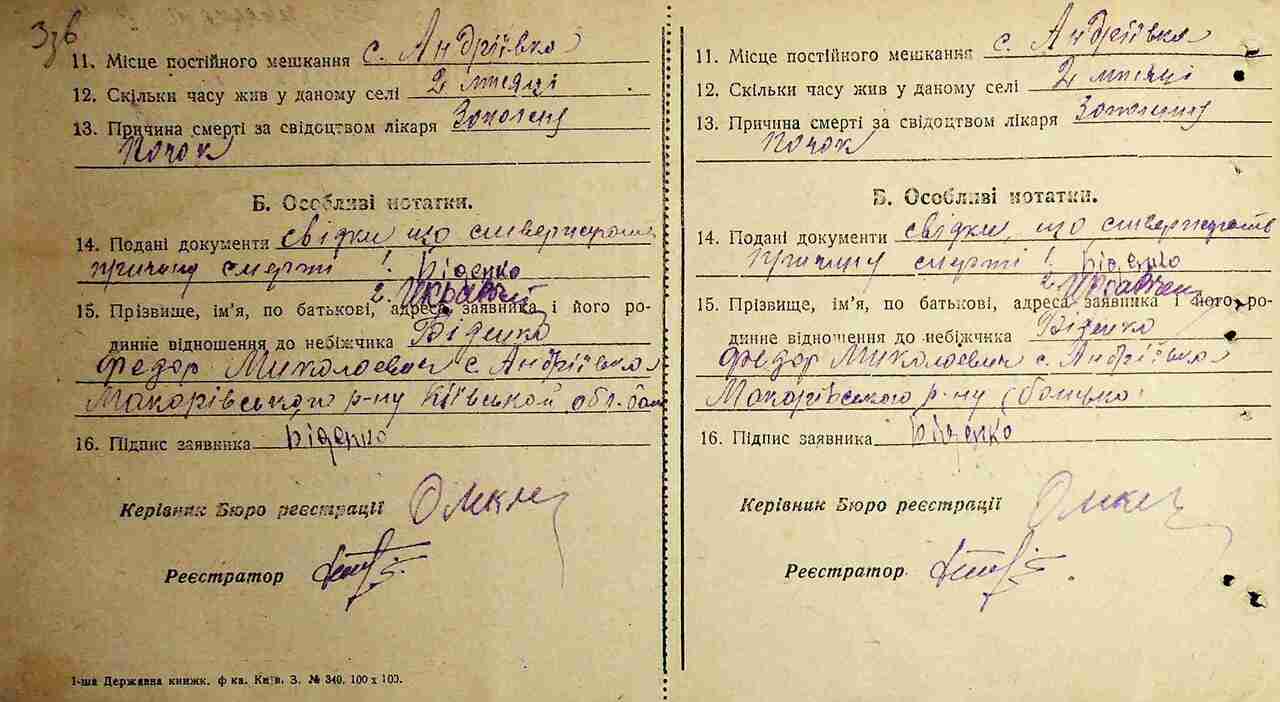 Ззв
11. Місце постійного мешкання с. Андріївка
12. Скільки часу жив у даному селі 2 місяці
13. Причина смерті за свідоцтвом лікаря Запалення
почок
Б. Особливі нотатки.
14. Подані документи свідки, що стверджують
причину смерті 1. Біденко
2. Икравчен
15. Прізвище, ім'я, по батькові, адреса заявника і його ро-
динне відношення до небіжчика Біденко
Федор Миколаевич с. Андріївка
Макарівського р-ну Київской обл. бат
16. Підпис заявника Біденко
Керівник Бюро реєстрації
Реєстратор
1-ша Державна книжк. ф-ка. Київ. З. № 340. 100 x 100.
11. Місце постійного мешкання с. Андріївка
12. Скільки часу жив у даному селі 2 місяці
13. Причина смерті за свідоцтвом лікаря Запалення
почок
Б. Особливі нотатки.
14. Подані документи свідки, що стверджують
причину смерті 1. Біденко
2.
15. Прізвище, ім'я, по батькові, адреса заявника і його ро-
динне відношення до небіжчика Біденко
Федор Миколаевич с. Андріївка
Макарівського р-ну (батько)
16. Підпис заявника Біденко
Керівник Бюро реєстрації
Реєстратор